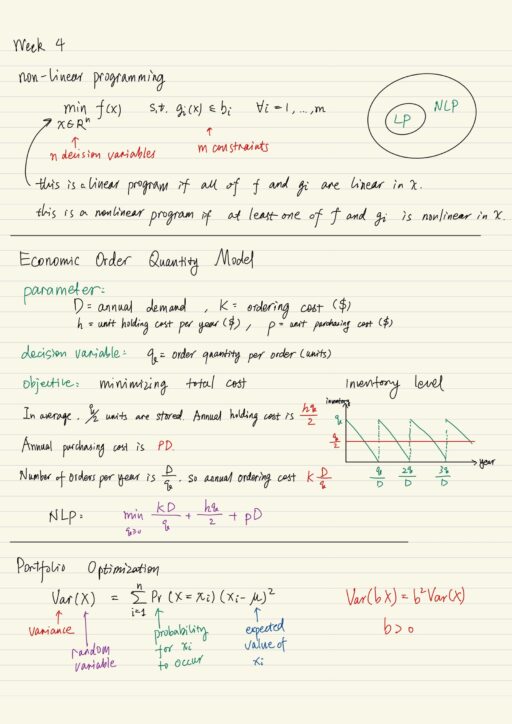 Week 4
non-linear programming
min f(x) s.t. gi(x) ≤ bi ∀i = 1, ..., m
x∈Rⁿ
NLP
LP
n decision variables
m constraints
this is a linear program if all of f and gi are linear in x.
this is a nonlinear program if at least one of f and gi is nonlinear in x.
Economic Order Quantity Model
parameter:
D = annual demand , K = ordering cost ($)
h = unit holding cost per year ($) , p = unit purchasing cost ($)
decision variable: q = order quantity per order (units)
objective: minimizing total cost
Inventory level
In average, q/2 units are stored. Annual holding cost is hq/2
Annual purchasing cost is PD.
Number of orders per year is D/q. so annual ordering cost K D/q
inventory
q
q/2
q/D 2q/D 3q/D
year
NLP: min KD/q + hq/2 + pD
q≥0
Portfolio Optimization
Var(X) = Σ Pr (X = xi) (xi - μ)²
n
i=1
Var(bX) = b² Var(X)
b>0
variance
random variable
probability for xi to occur
expected value of xi